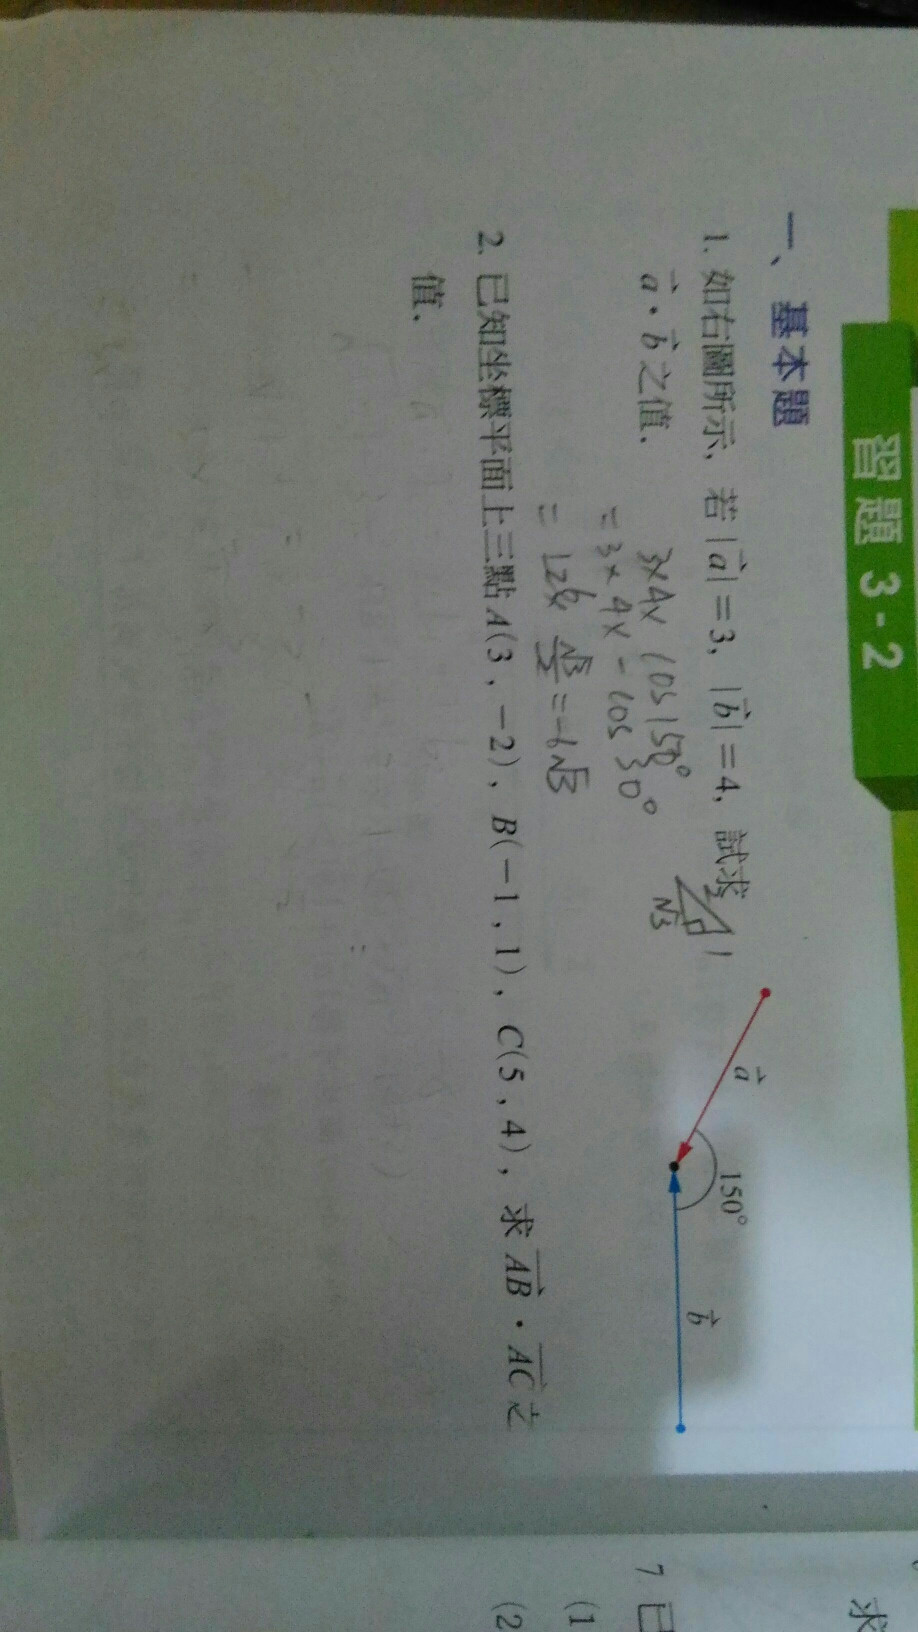 習題 3-2
一、基本題
1. 如右圖所示, 若|a⃗|=3, |b⃗|=4, 試求
a⃗·b⃗之值.
3×4×cos150°
=3×4×-cos30°
√3
1
a⃗
150°
b⃗
2. 已知坐標平面上三點A(3,-2), B(-1,1), C(5,4), 求AB⃗·AC⃗之
值.
求
7.已
(1
(2